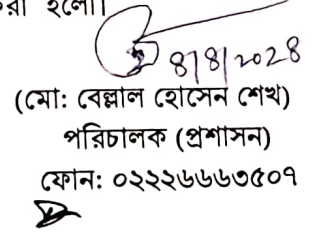 করা হলো।
৪/৪/২০২৪
(মো: বেল্লাল হোসেন শেখ)
পরিচালক (প্রশাসন)
ফোন: ০২২২৬৬৬৩৫০৭